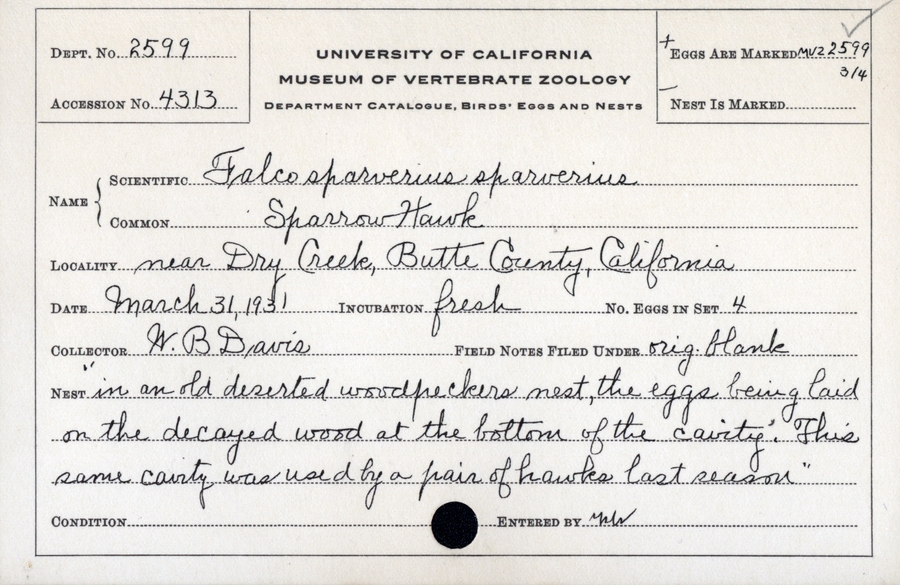 DEPT. No. 2599
ACCESSION No. 4313
UNIVERSITY OF CALIFORNIA
MUSEUM OF VERTEBRATE ZOOLOGY
DEPARTMENT CATALOGUE, BIRDS' EGGS AND NESTS
+ EGGS ARE MARKED MVZ 2599
3/4
– NEST IS MARKED
NAME
SCIENTIFIC Falco sparverius sparverius
COMMON Sparrow Hawk
LOCALITY near Dry Creek, Butte County, California
DATE March 31, 1931 INCUBATION fresh No. EGGS IN SET 4
COLLECTOR W. B Davis FIELD NOTES FILED UNDER orig. blank
NEST "in an old deserted woodpeckers nest, the eggs being laid
on the decayed wood at the bottom of the cavity". This
same cavity was used by a pair of hawks last season"
CONDITION ENTERED BY